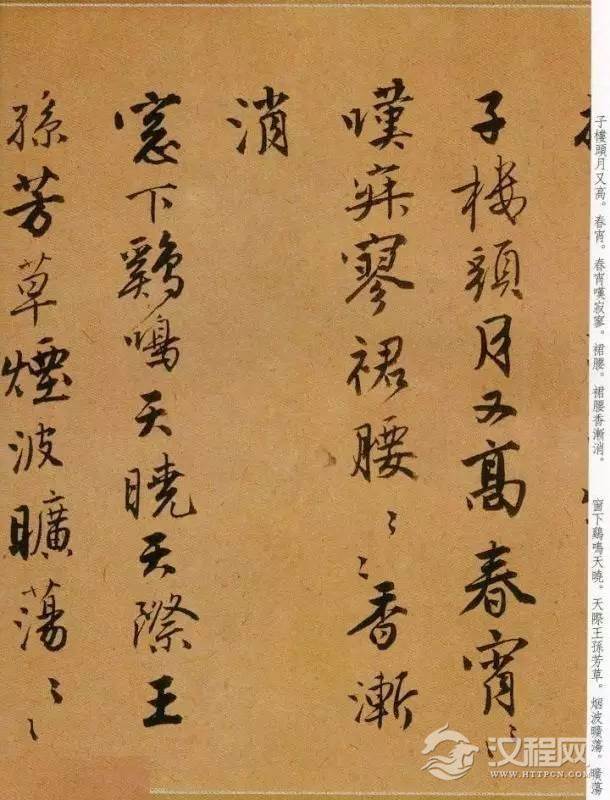 子樓頭月又高。春宵。春宵嘆寂寥。裙腰。裙腰香漸消。　窗下鷄鳴天曉。天際王孫芳草。烟波曠蕩。曠蕩
子樓頭月又高春宵〻〻
嘆寂寥裙腰〻〻香漸
消
窓下鷄鳴天曉天際王
孫芳草煙波曠蕩〻〻
汉程网
WWW.HTTPCN.COM